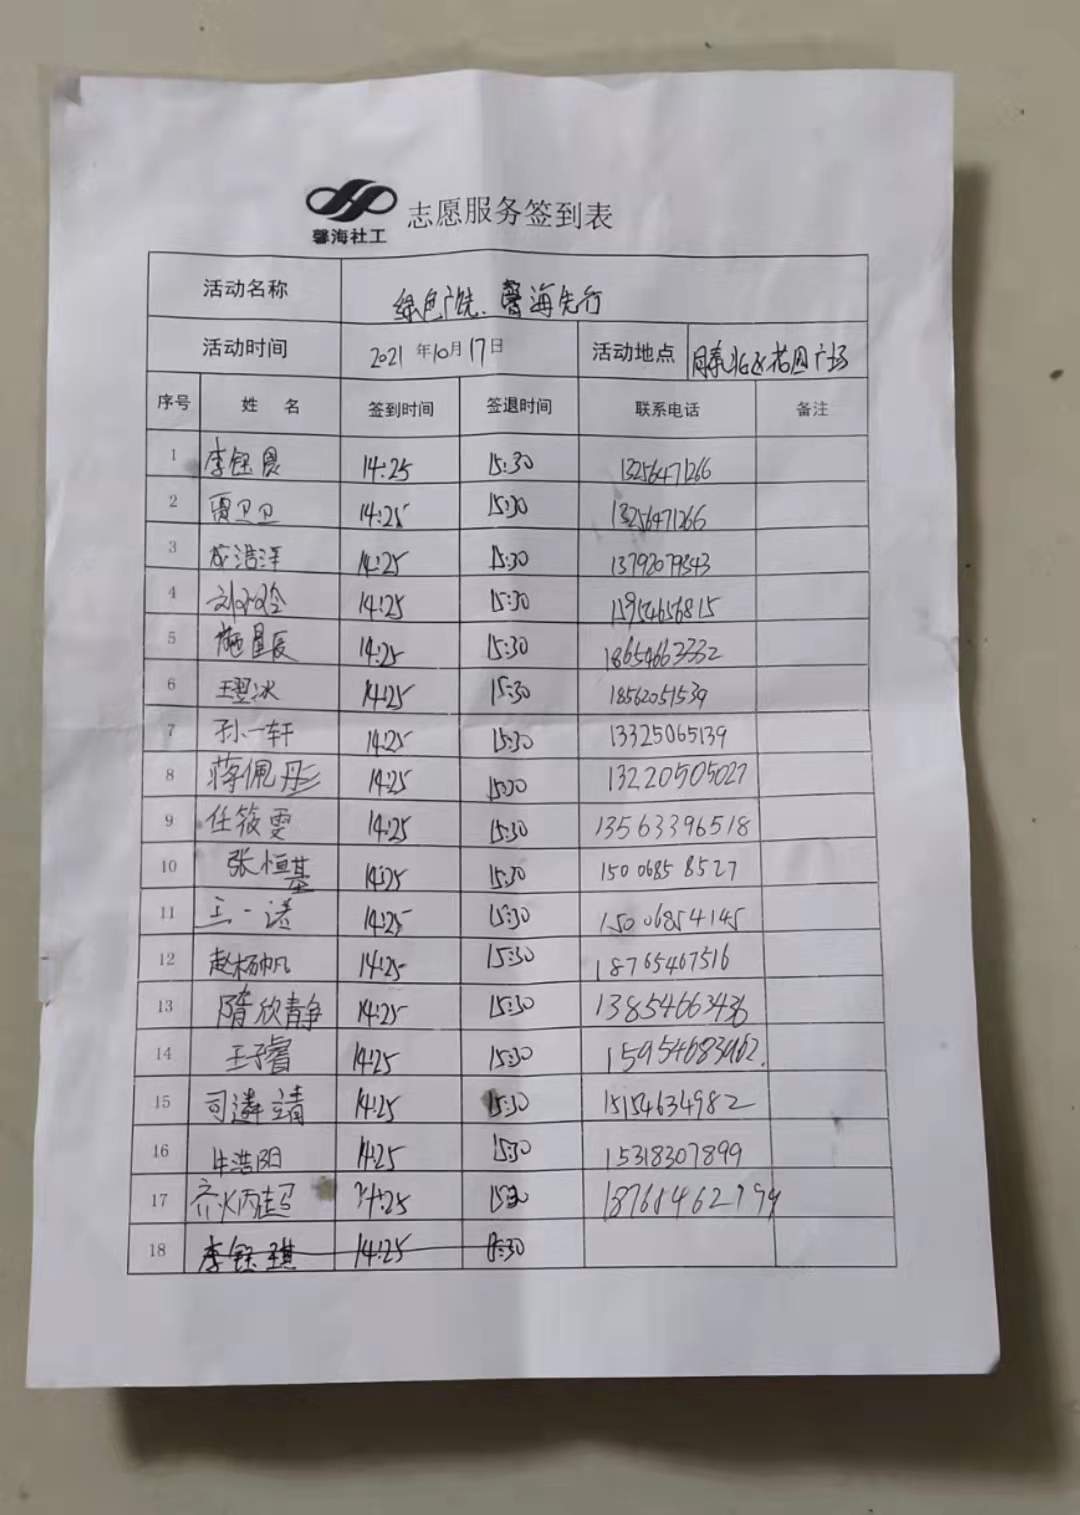 馨海社工 志愿服务签到表
活动名称 绿色广饶、馨海先行
活动时间 2021年10月17日 活动地点 同泰北区花园广场
序号 姓 名 签到时间 签退时间 联系电话 备注
1 李钰晨 14:25 15:30 13256471266
2 贾卫卫 14:25 15:30 13256471266
3 浩洋 14:25 15:30 13792079843
4 刘 14:25 15:30 15954656815
5 施星辰 14:25 15:30 18654663332
6 王翌冰 14:25 15:30 18562051539
7 孙一轩 14:25 15:30 13325065139
8 蒋佩彤 14:25 15:30 13220505027
9 任筱雯 14:25 15:30 13563396518
10 张恒基 14:25 15:30 15006858527
11 王一诺 14:25 15:30 15006854145
12 赵杨帆 14:25 15:30 18765467516
13 隋欣静 14:25 15:30 13854663436
14 王子睿 14:25 15:30 15954683962
15 司遴靖 14:25 15:30 15154634982
16 牛浩阳 14:25 15:30 15318307899
17 14:25 15:30
18 李钰琪 14:25 15:30